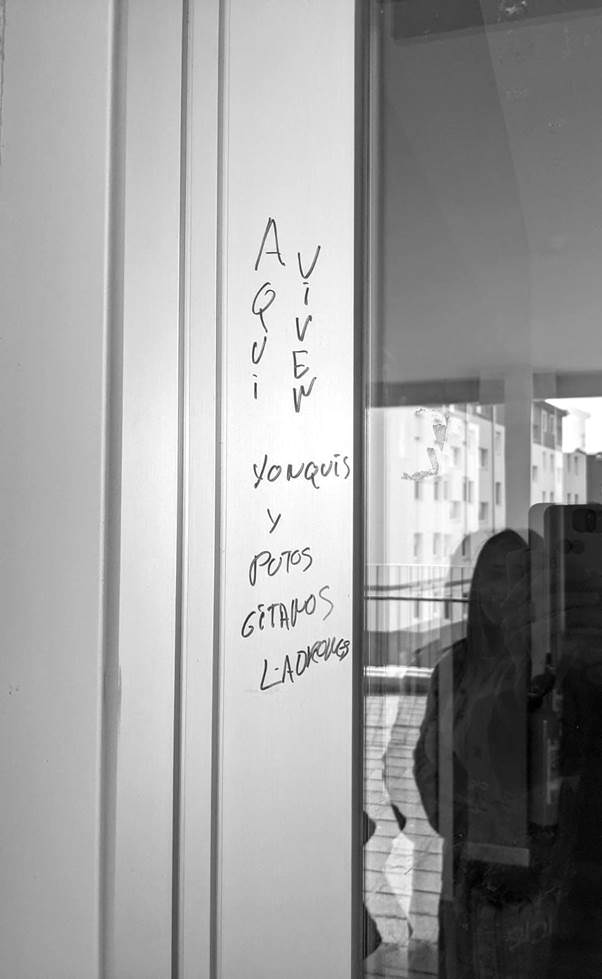 AQUi
ViVEN
YONQUiS
Y
PUTOS
GiTANOS
LADRONES